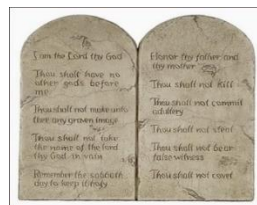 I am the Lord thy God
Thou shalt have no
other gods before
me
Thou shalt not make unto
thee any graven image
Thou shalt not take
the name of the Lord
thy God in vain
Remember the sabbath
day to keep it holy
Honor thy father and
thy mother
Thou shalt not kill
Thou shalt not commit
adultery
Thou shalt not steal
Thou shalt not bear
false witness
Thou shalt not covet